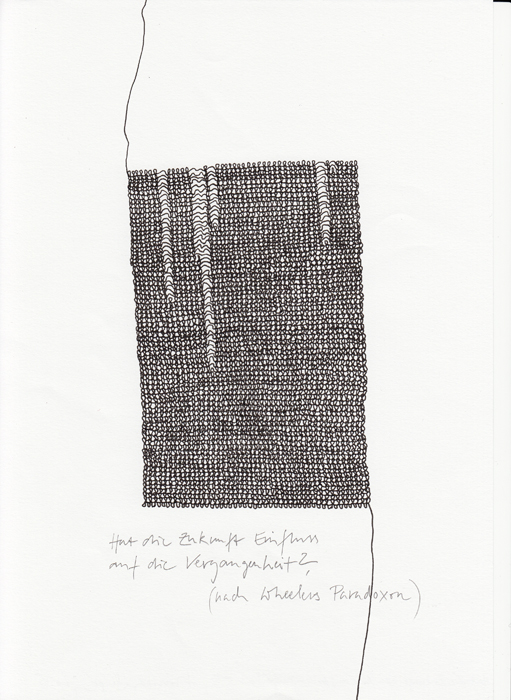 Hat die Zukunft Einfluss
auf die Vergangenheit?
(nach Wheelers Paradoxon)